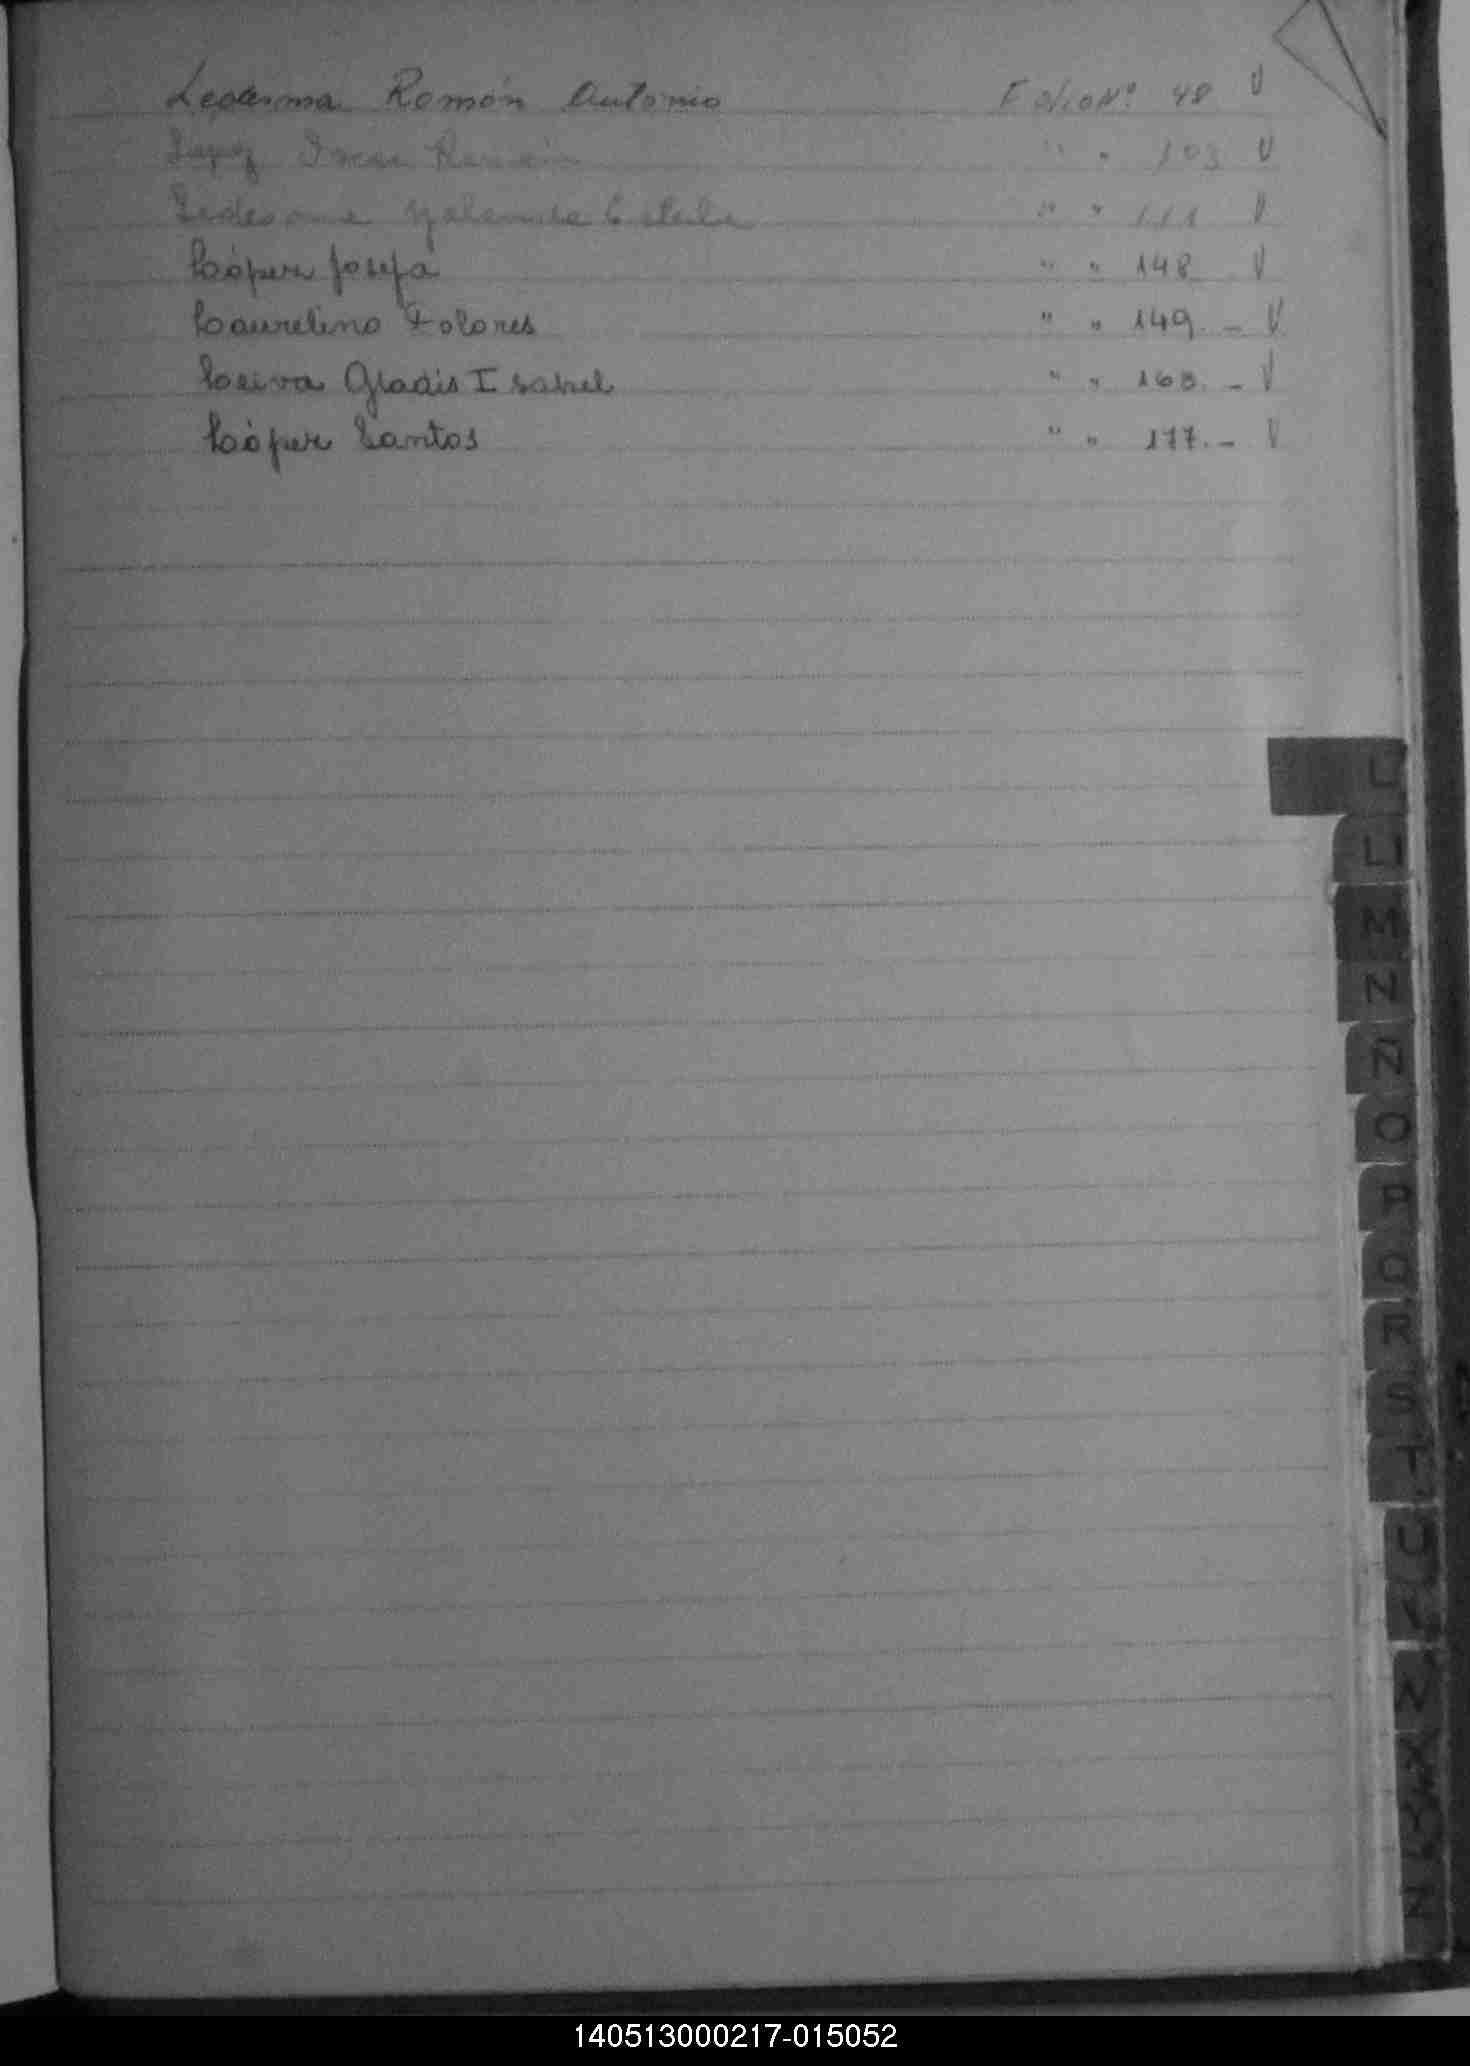 Ledesma Román Antonio Folio Nº 48 V
Lopez Ramón " " 103 V
Ledesma Yolanda Estela " " 111 V
López Josefa " " 148 V
Laurelino Dolores " " 149.- V
Leiva Gladis Isabel " " 163.- V
López Santos " " 177.- V
L
LL
M
N
Ñ
O
P
Q
R
S
T
U
V
W
X
Y
Z
140513000217-015052